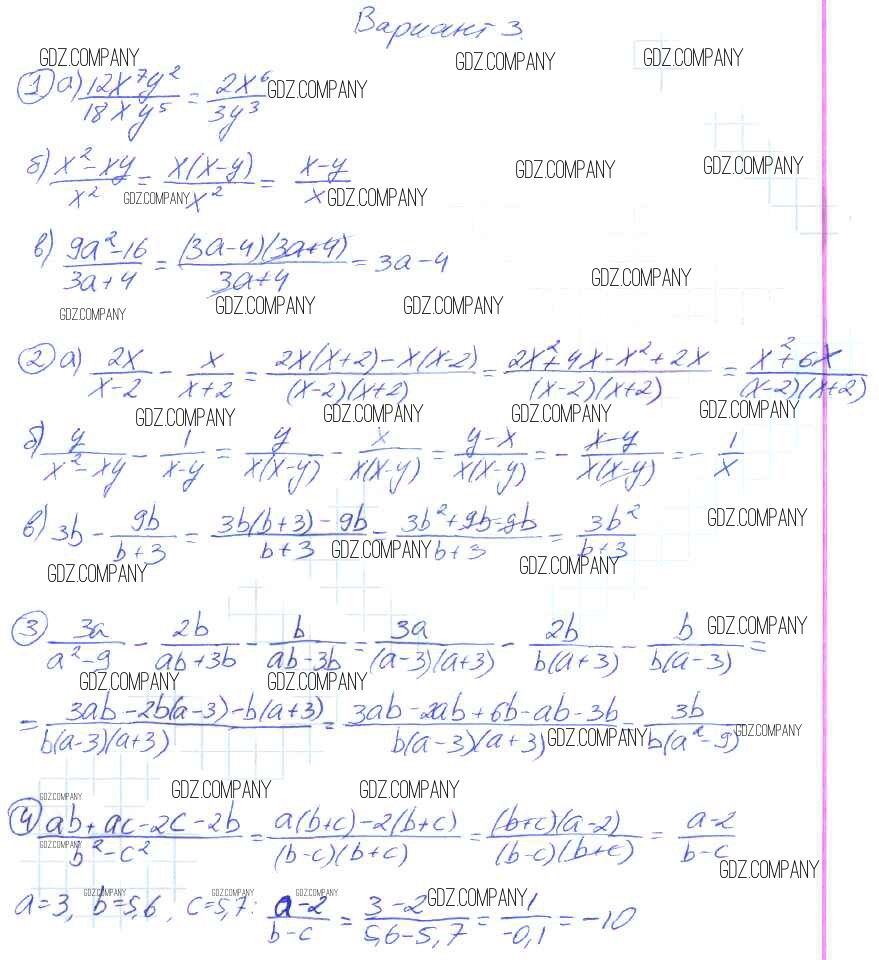 Вариант 3.
GDZ.COMPANY GDZ.COMPANY GDZ.COMPANY
① а) 12x⁷y²/18xy⁵ = 2x⁶/3y³ GDZ.COMPANY
б) x²-xy/x² = x(x-y)/x² = x-y/x GDZ.COMPANY GDZ.COMPANY
GDZ.COMPANY GDZ.COMPANY
в) 9a²-16/3a+4 = (3a-4)(3a+4)/3a+4 = 3a-4 GDZ.COMPANY
GDZ.COMPANY GDZ.COMPANY GDZ.COMPANY
② а) 2x/x-2 - x/x+2 = 2x(x+2)-x(x-2)/(x-2)(x+2) = 2x²+4x-x²+2x/(x-2)(x+2) = x²+6x/(x-2)(x+2)
GDZ.COMPANY GDZ.COMPANY GDZ.COMPANY GDZ.COMPANY
б) y/x²-xy - 1/x-y = y/x(x-y) - x/x(x-y) = y-x/x(x-y) = - x-y/x(x-y) = - 1/x
в) 3b - 9b/b+3 = 3b(b+3)-9b/b+3 = 3b²+9b-9b/b+3 = 3b²/b+3 GDZ.COMPANY
GDZ.COMPANY GDZ.COMPANY GDZ.COMPANY
③ 3a/a²-9 - 2b/ab+3b - b/ab-3b = 3a/(a-3)(a+3) - 2b/b(a+3) - b/b(a-3) = GDZ.COMPANY
GDZ.COMPANY GDZ.COMPANY
= 3ab-2b(a-3)-b(a+3)/b(a-3)(a+3) = 3ab-2ab+6b-ab-3b/b(a-3)(a+3) = 3b/b(a²-9) GDZ.COMPANY GDZ.COMPANY
GDZ.COMPANY GDZ.COMPANY GDZ.COMPANY
④ ab+ac-2c-2b/b²-c² = a(b+c)-2(b+c)/(b-c)(b+c) = (b+c)(a-2)/(b-c)(b+c) = a-2/b-c
GDZ.COMPANY GDZ.COMPANY
GDZ.COMPANY GDZ.COMPANY GDZ.COMPANY GDZ.COMPANY
a=3, b=5,6, c=5,7: a-2/b-c = 3-2/5,6-5,7 = 1/-0,1 = -10